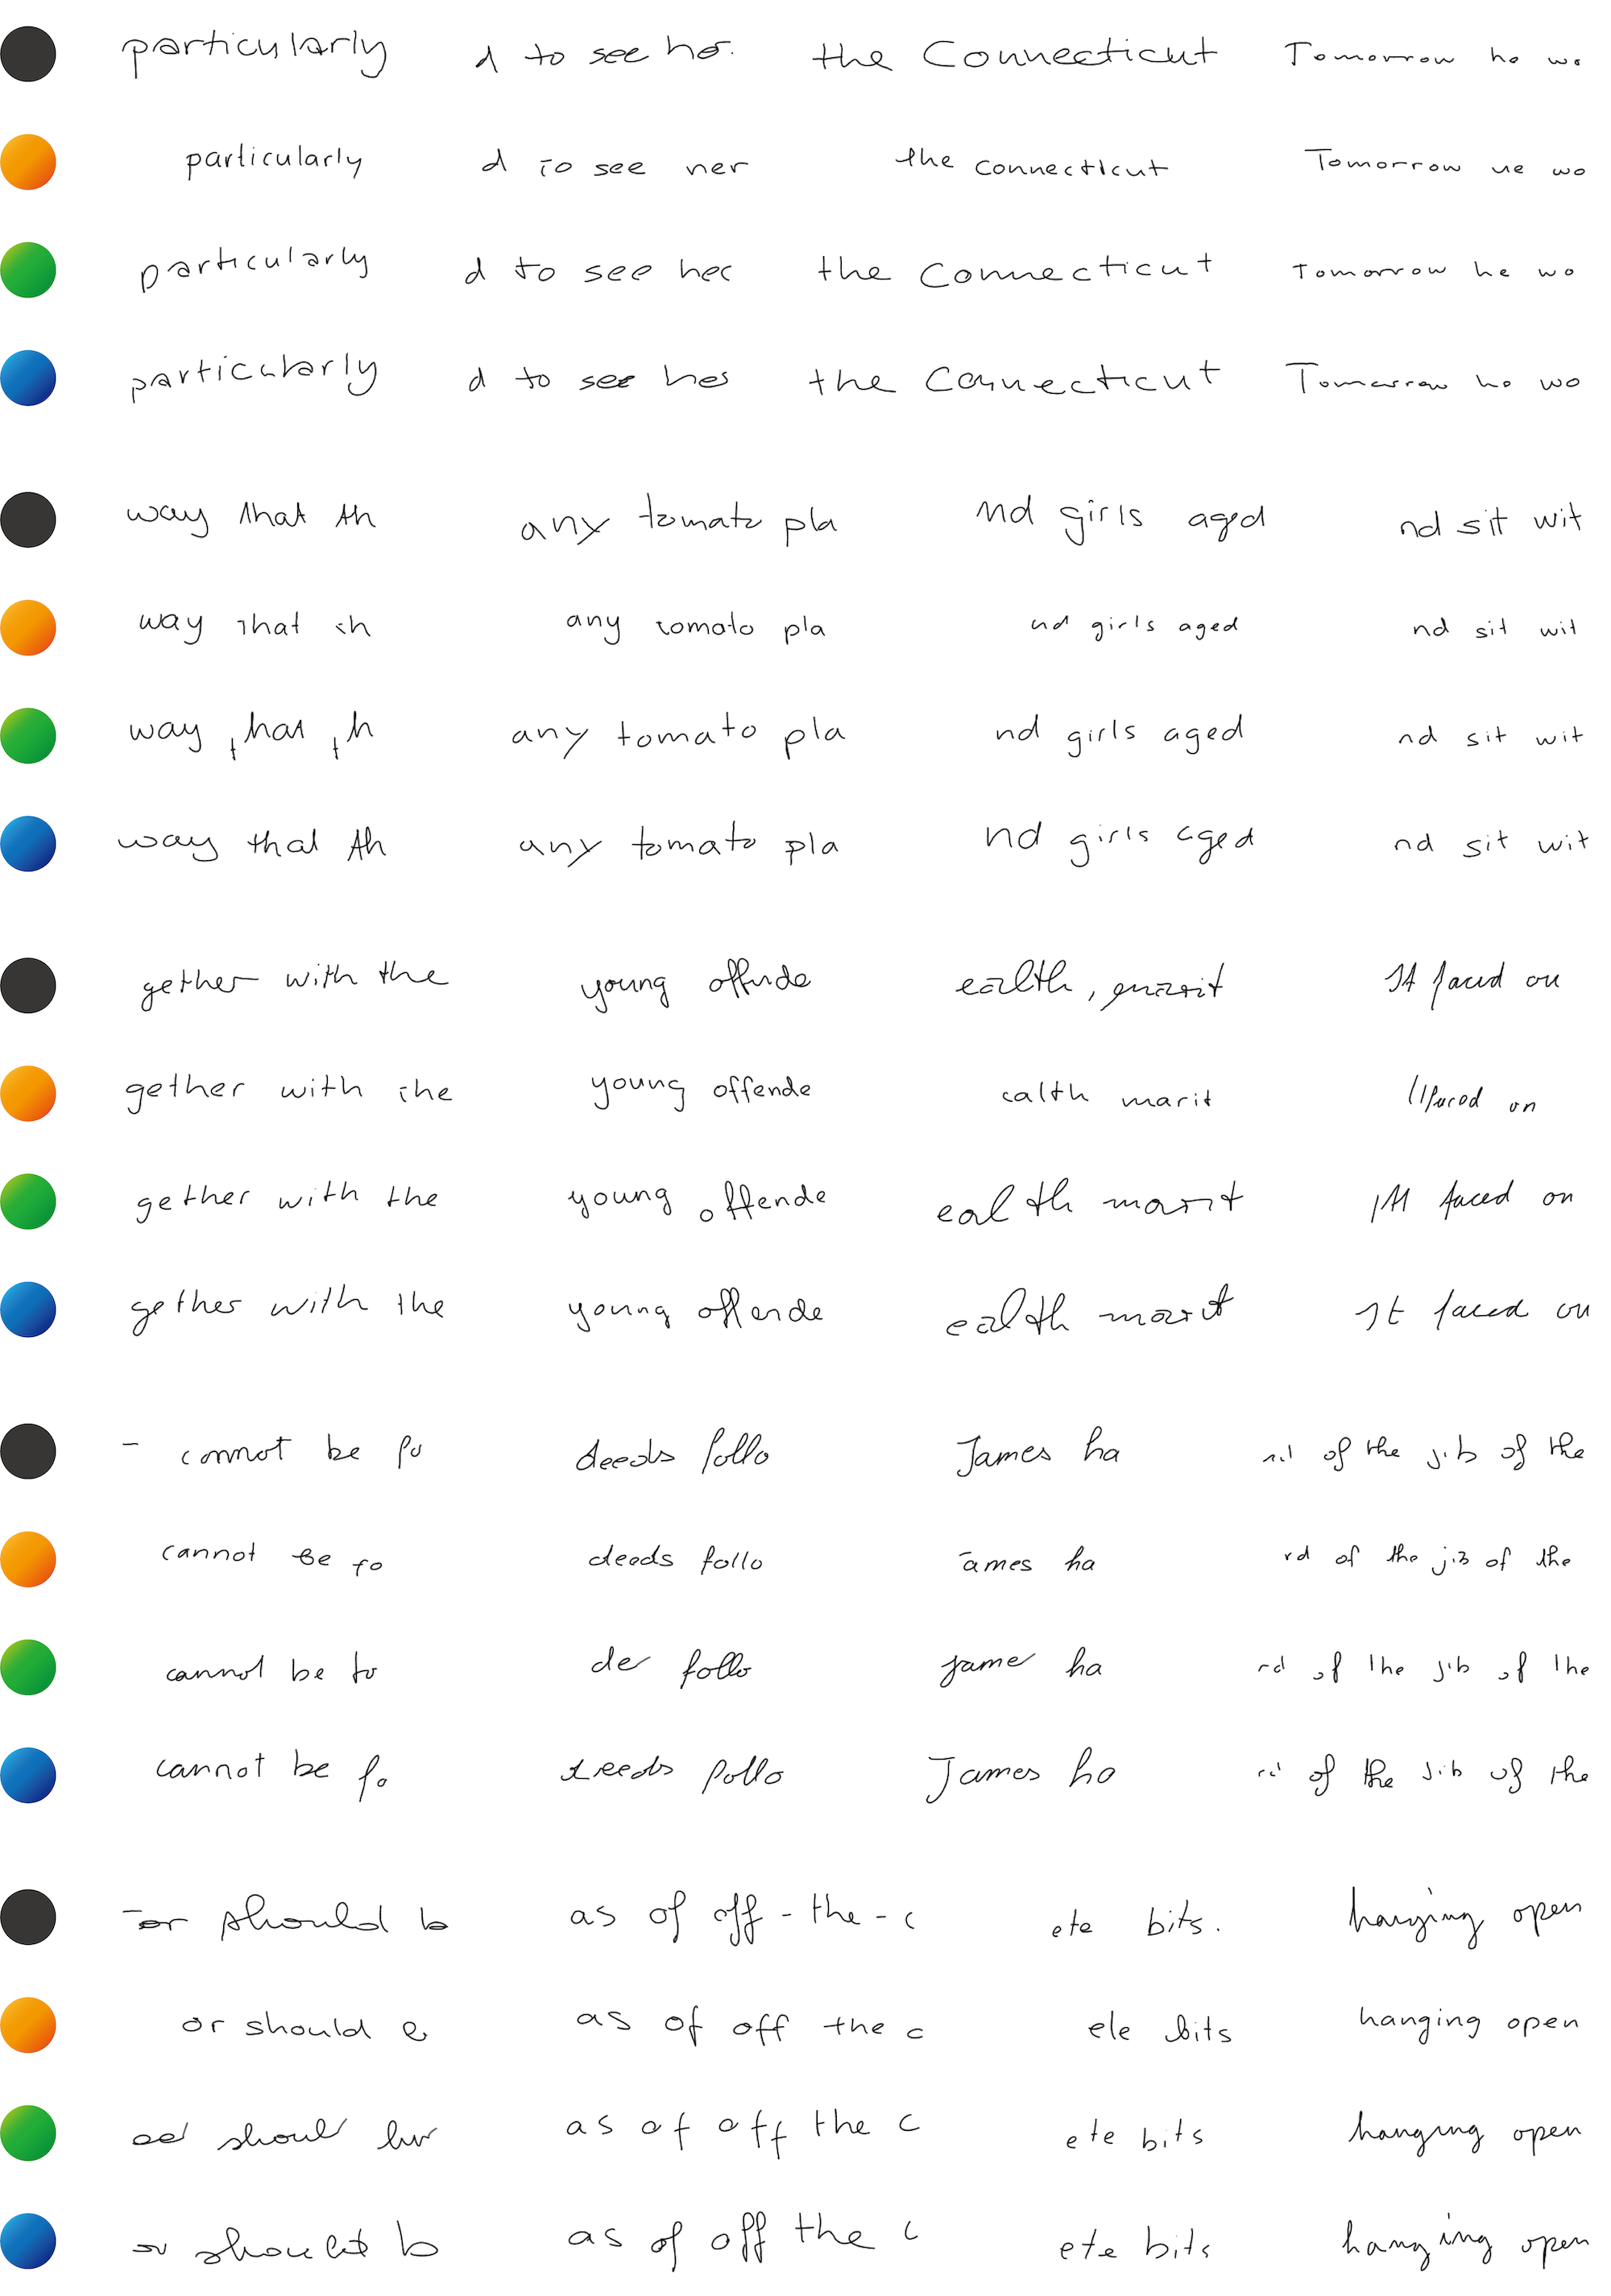 particularly d to see her. the Connecticut Tomorrow he wo
particularly d to see her the connecticut Tomorrow he wo
particularly d to see hec the Connecticut Tomorrow he wo
particularly d to see hes the Connecticut Tomorrow ho wo
way that th any tomato pla nd girls aged nd sit wit
way that th any tomato pla nd girls aged nd sit wit
way that th any tomato pla nd girls aged nd sit wit
way that th any tomato pla nd girls aged nd sit wit
gether with the young offende ealth, marit It faced on
gether with the young offende ealth marit faced on
gether with the young offende ealth marit It faced on
gether with the young offende ealth marit It faced on
- cannot be fo deeds follo James ha of the jib of the
cannot be fo deeds follo ames ha rd of the jib of the
cannot be to de follo jame ha rd of the jib of the
cannot be fo deeds follo James ha rd of the jib of the
-or should b as of off-the-c ete bits. hanging open
or should as of off the c ele bits hanging open
shoul as of off the c ete bits hanging open
or should b as of off the c ete bits hanging open